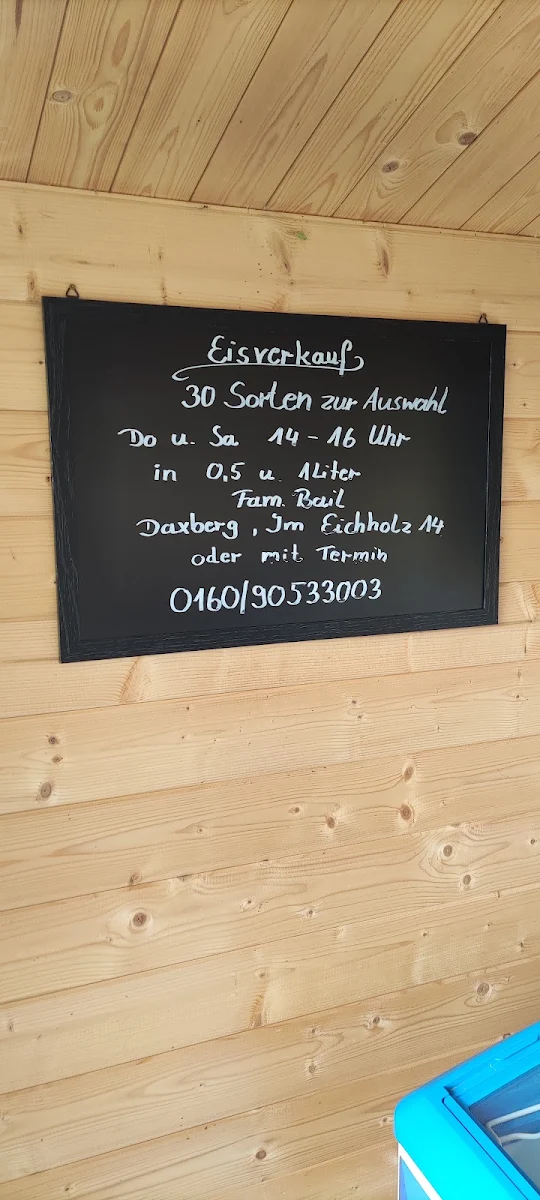 Eisverkauf
30 Sorten zur Auswahl
Do u. Sa 14 - 16 Uhr
in 0,5 u. 1 Liter
Fam. Bail
Daxberg, Im Eichholz 14
oder mit Termin
0160/90533003